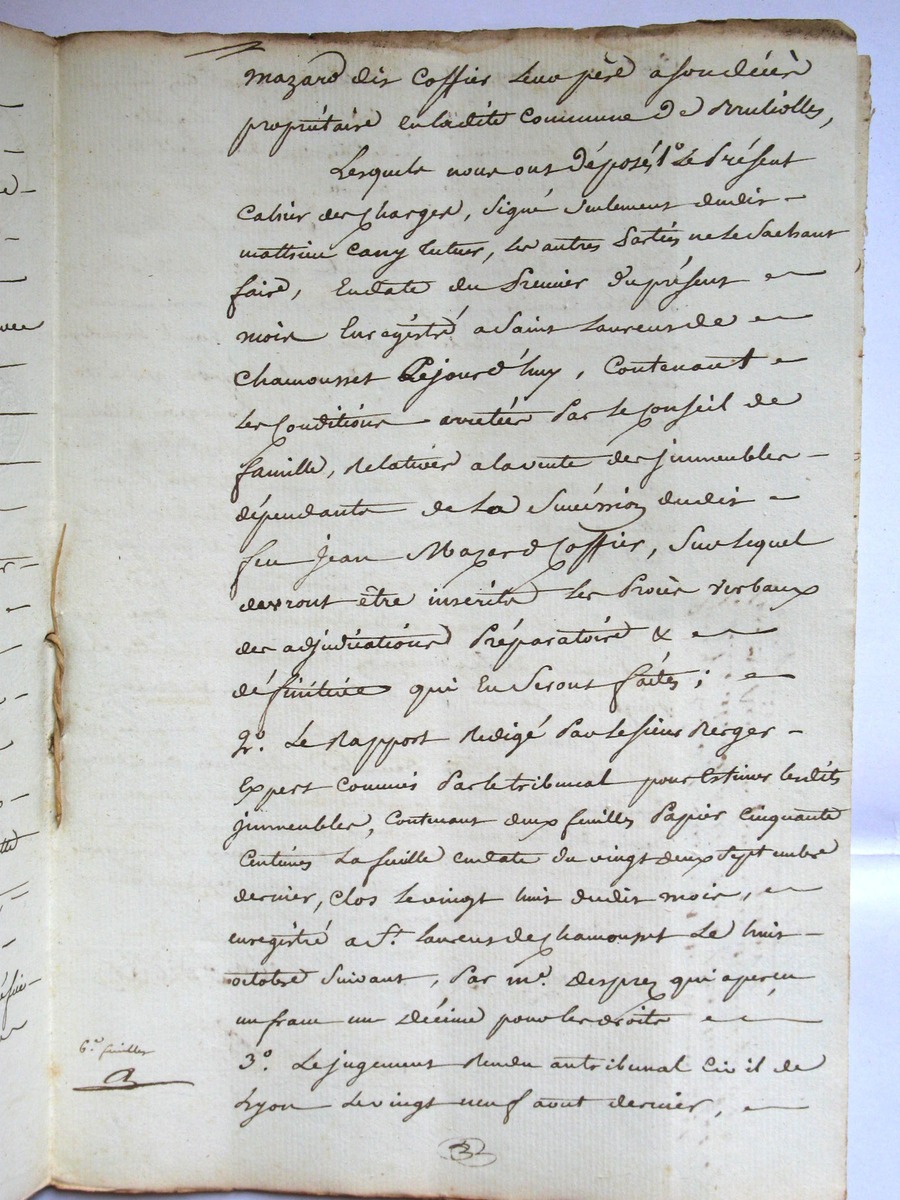 mazard dit Coffier leur père à son décès
propriétaire en ladite Commune de Brullioles,
Lesquels nous ont déposés 1º Le Présent
Cahier des Charges, signé seulement dudit
mathieu Cany tuteur, les autres Parties ne Le Sachant
faire, En date du Premier du présent
mois Enregistré a Saint Laurens de
Chamousset Cejourd'huy, Contenant
Les Conditions arretées Par Le Conseil de
famille, Relatives a la vente des jmmeubles
dépendants de La Succéssion dudit
feu Jean Mazard Coffier, Sur Lequel
devront être insérits Les Procès verbaux
des adjudications Préparatoire &
définitive qui En Seront faites ;
2º. Le Rapport Redigé Par Le Sieur Berger
Expert Commis Par le tribunal pour Estimer lesdits
jmmeubles, Contenant deux feuilles Papier Cinquante
Centimes La feuille en date du vingt deux Septembre
dernier, Clos Le vingt huit dudit moix,
enregistré a St. Laurens de Chamousset Le huit
octobre Suivant, Par me. desprez qui a perçu
un franc un Décime pour les droits
3º. Le jugement Rendu au tribunal Civil de
Lyon Le vingt neuf aout dernier,
6e. feuillet
3